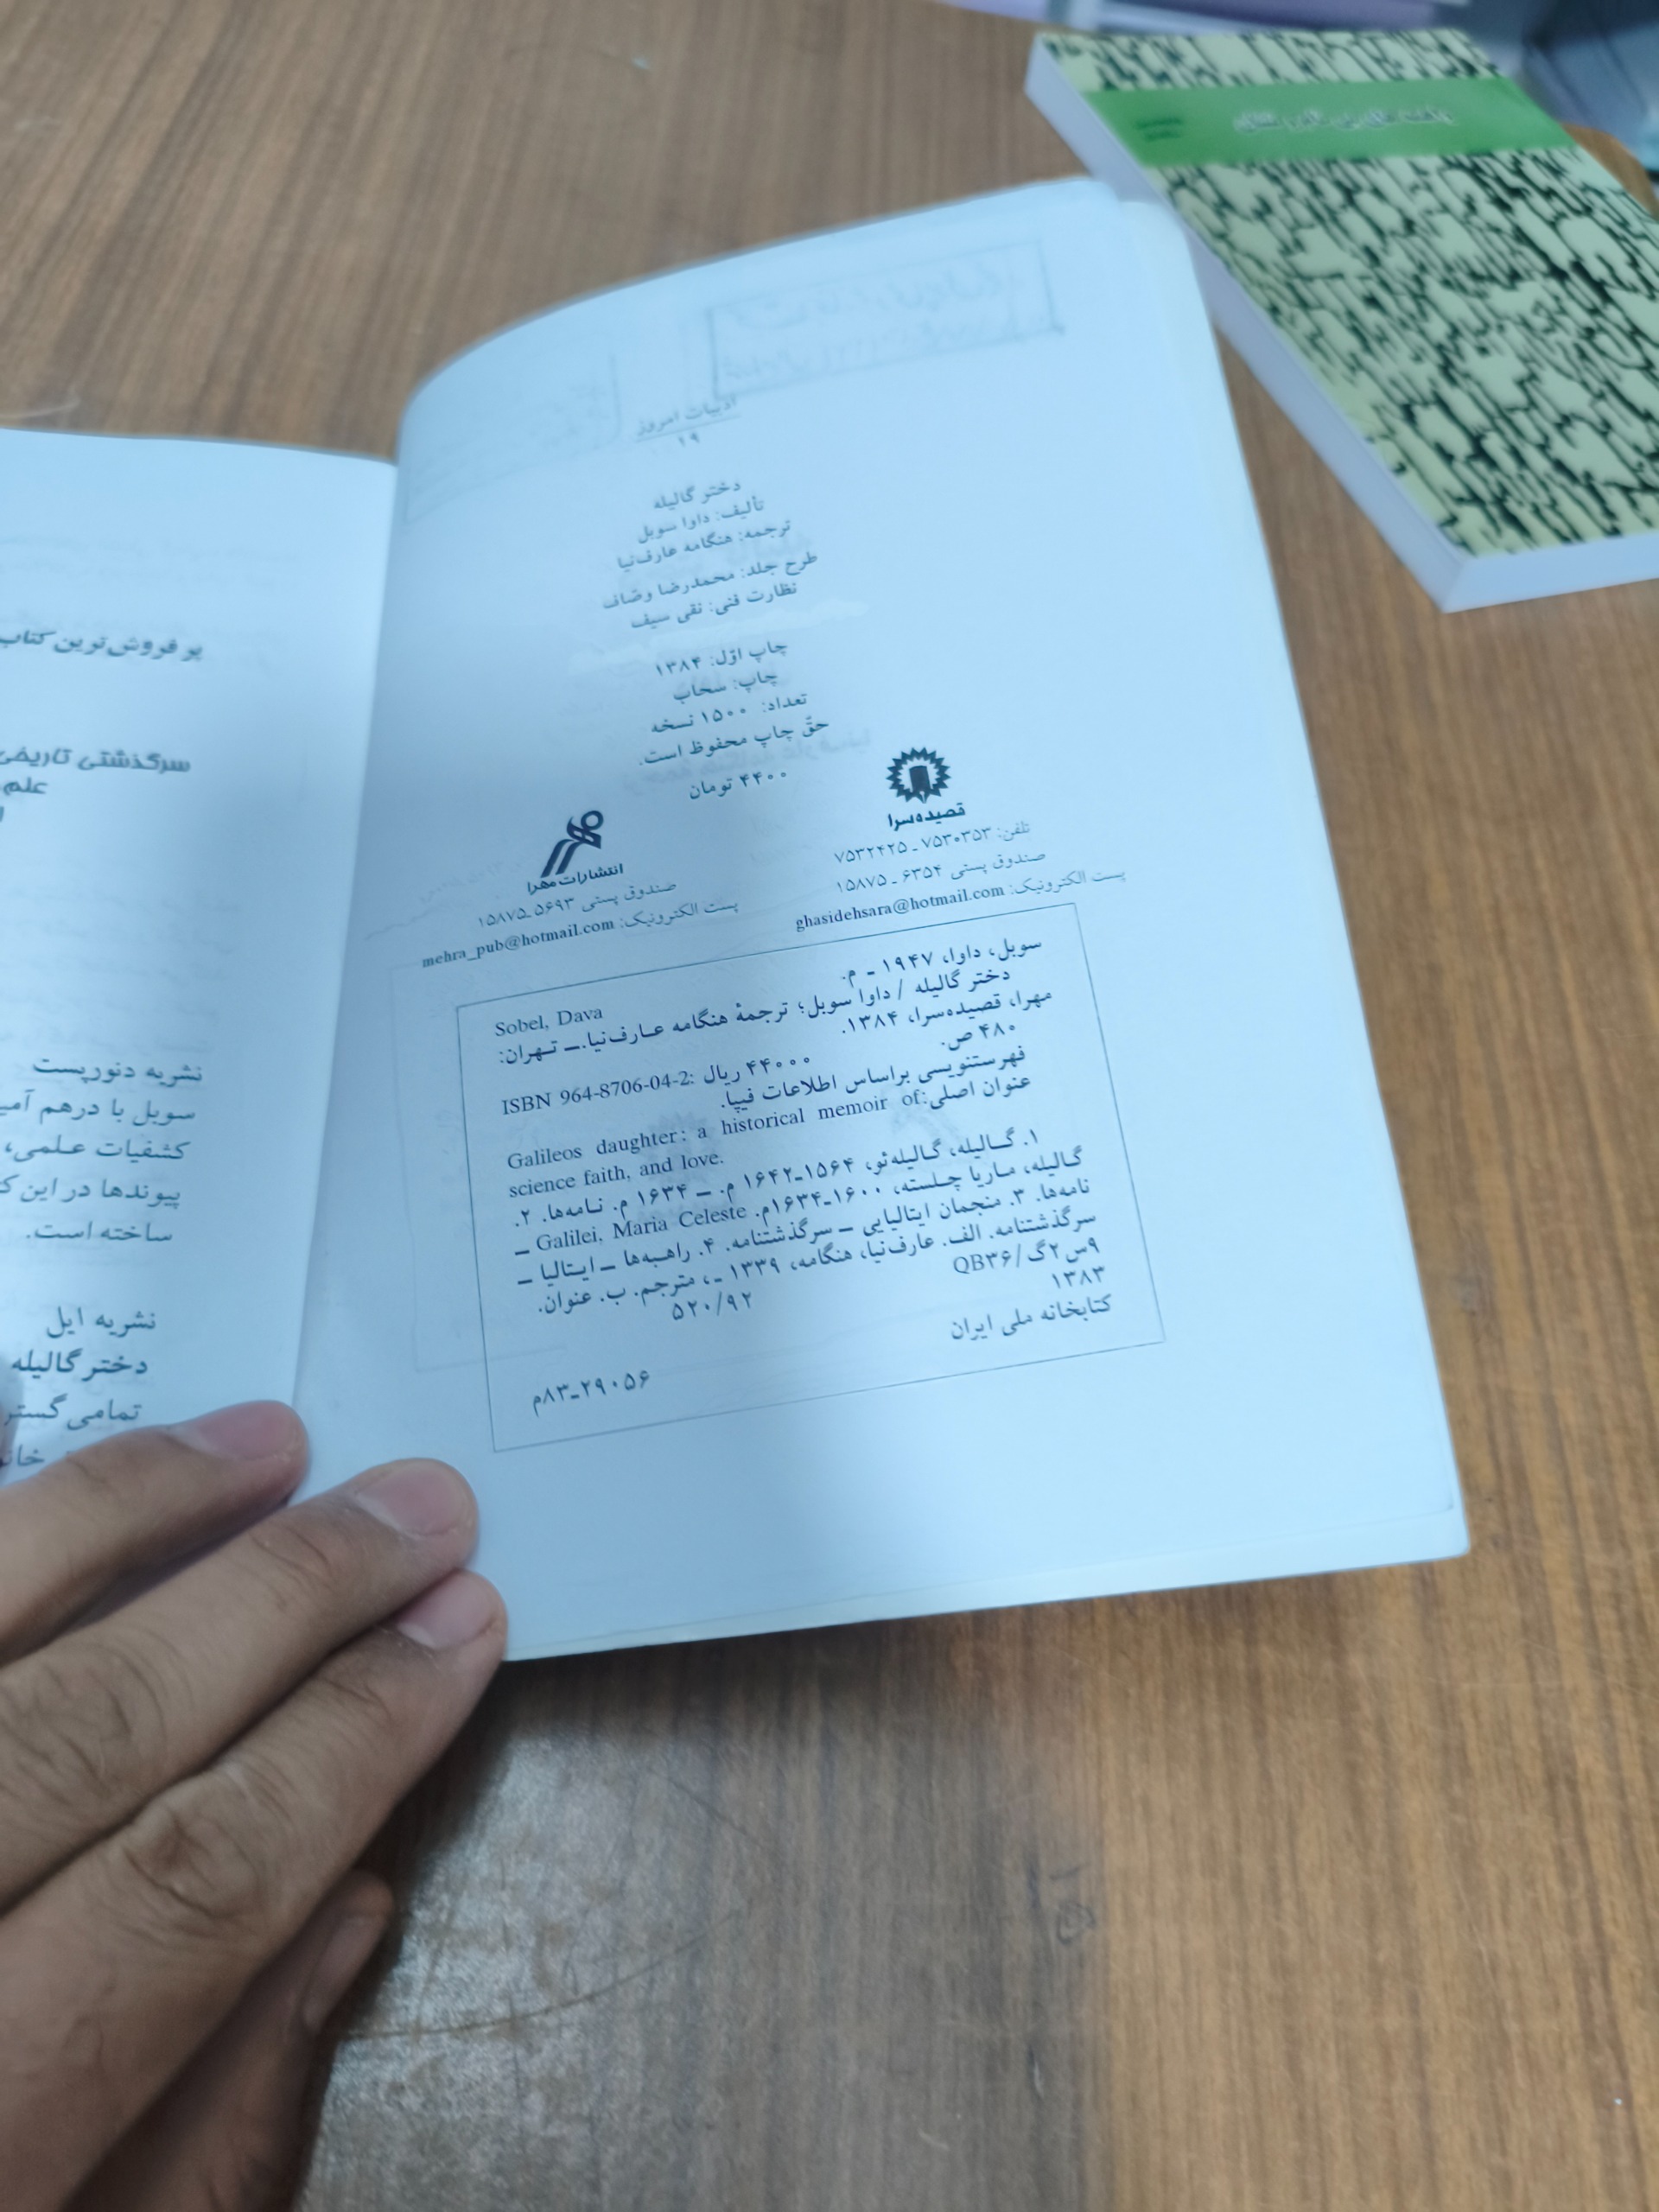 ادبیات امروز
۱۹
دختر گالیله
تألیف: داوا سوبل
ترجمه: هنگامه عارف‌نیا
طرح جلد: محمدرضا وصّاف
نظارت فنی: نقی سیف
چاپ اوّل: ۱۳۸۴
چاپ: سحاب
تعداد: ۱۵۰۰ نسخه
حقّ چاپ محفوظ است.
۴۴۰۰ تومان
قصیده‌سرا
تلفن: ۷۵۳۰۳۵۳ ـ ۷۵۳۲۴۲۵
صندوق پستی ۶۳۵۴ ـ ۱۵۸۷۵
پست الکترونیک: ghasidehsara@hotmail.com
انتشارات مهرا
صندوق پستی ۵۶۹۳ ـ ۱۵۸۷۵
پست الکترونیک: mehra_pub@hotmail.com
سوبل، داوا، ۱۹۴۷ ـ م.
Sobel, Dava
دختر گالیله / داوا سوبل؛ ترجمهٔ هنگامه عارف‌نیا. ــ تهران:
مهرا، قصیده‌سرا، ۱۳۸۴.
۴۸۰ ص.
ISBN 964-8706-04-2: ۴۴۰۰۰ ریال
فهرستنویسی براساس اطلاعات فیپا.
عنوان اصلی: Galileos daughter: a historical memoir of
science faith, and love.
۱. گالیله، گالیله‌ئو، ۱۵۶۴ـ۱۶۴۲ م. ــ ۱۶۳۴ م. نامه‌ها. ۲.
گالیله، ماریا چلسته، ۱۶۰۰ـ۱۶۳۴م. Galilei, Maria Celeste ــ
نامه‌ها. ۳. منجمان ایتالیایی ــ سرگذشتنامه. ۴. راهبه‌ها ــ ایتالیا ــ
سرگذشتنامه. الف. عارف‌نیا، هنگامه، ۱۳۳۹ ـ، مترجم. ب. عنوان.
۹س۲گ/QB۳۶
۵۲۰/۹۲
۱۳۸۳
کتابخانه ملی ایران
۲۹۰۵۶ـ۸۳م
پر فروش‌ترین کتاب
سرگذشتی تاریخی
علم
نشریه دنورپست
سوبل با درهم آمی
کشفیات علمی،
پیوندها در این ک
ساخته است.
نشریه ایل
دختر گالیله
تمامی گستر